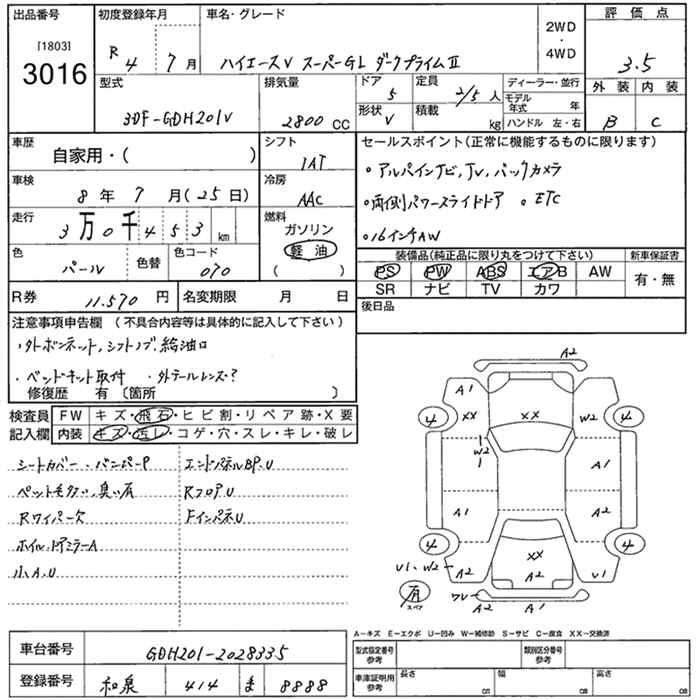 出品番号 初度登録年月 車名・グレード 2WD・4WD 評価点
[1803] 3016 R 4 7月 ハイエースV スーパーGL ダークプライムⅡ 3.5
型式 排気量 ドア 5 定員 2/5人 ディーラー・並行 外装 内装
3DF-GDH201V 2800 CC 形状 V 積載 kg モデル年式 年 ハンドル 左・右 B C
車歴 自家用・( ) シフト 1AT セールスポイント(正常に機能するものに限ります)
車検 8年 7月(25日) 冷房 AAC 。アルパインナビ,TV,バックカメラ
走行 3万0千453km 燃料 ガソリン 軽油 ( ) 。両側パワースライドドア 。ETC
。16インチAW
色 パール 色替 色コード 070 装備品(純正品に限り丸をつけて下さい) 新車保証書
PS PW ABS エアB AW 有・無
SR ナビ TV カワ
R券 11.570円 名変期限 月 日 後日品
注意事項申告欄 (不具合内容等は具体的に記入して下さい)
・外ボンネット,シフトノブ,給油口
・ベッドキット取付 ・外テールレンズ?
修復歴 有〔箇所 〕
検査員記入欄 FW キズ・飛石・ヒビ割・リペア跡・X要
内装 キズ・汚レ・コゲ・穴・スレ・キレ・破レ
シートカバー、バンパーP エンドパネルBP.U
ペット毛多い、臭い有 RフロアU
Rワイパー欠 FインパネU
ホイル,ドアミラーA
小A.U
A2
A1 XX XX W2
4 4
W2 A1
A1 A2
4 4
U1、W2 A2 XX A2 U1
有 スペア ワレ A2 A1
A−キズ E−エクボ U−凹み W−補修跡 S−サビ C−腐食 XX−交換済
車台番号 GDH201-2028335 型式指定番号 参考 類別区分番号 参考
登録番号 和泉 414 ま 8888 車庫証明用 参考 長さ cm 幅 cm 高さ cm